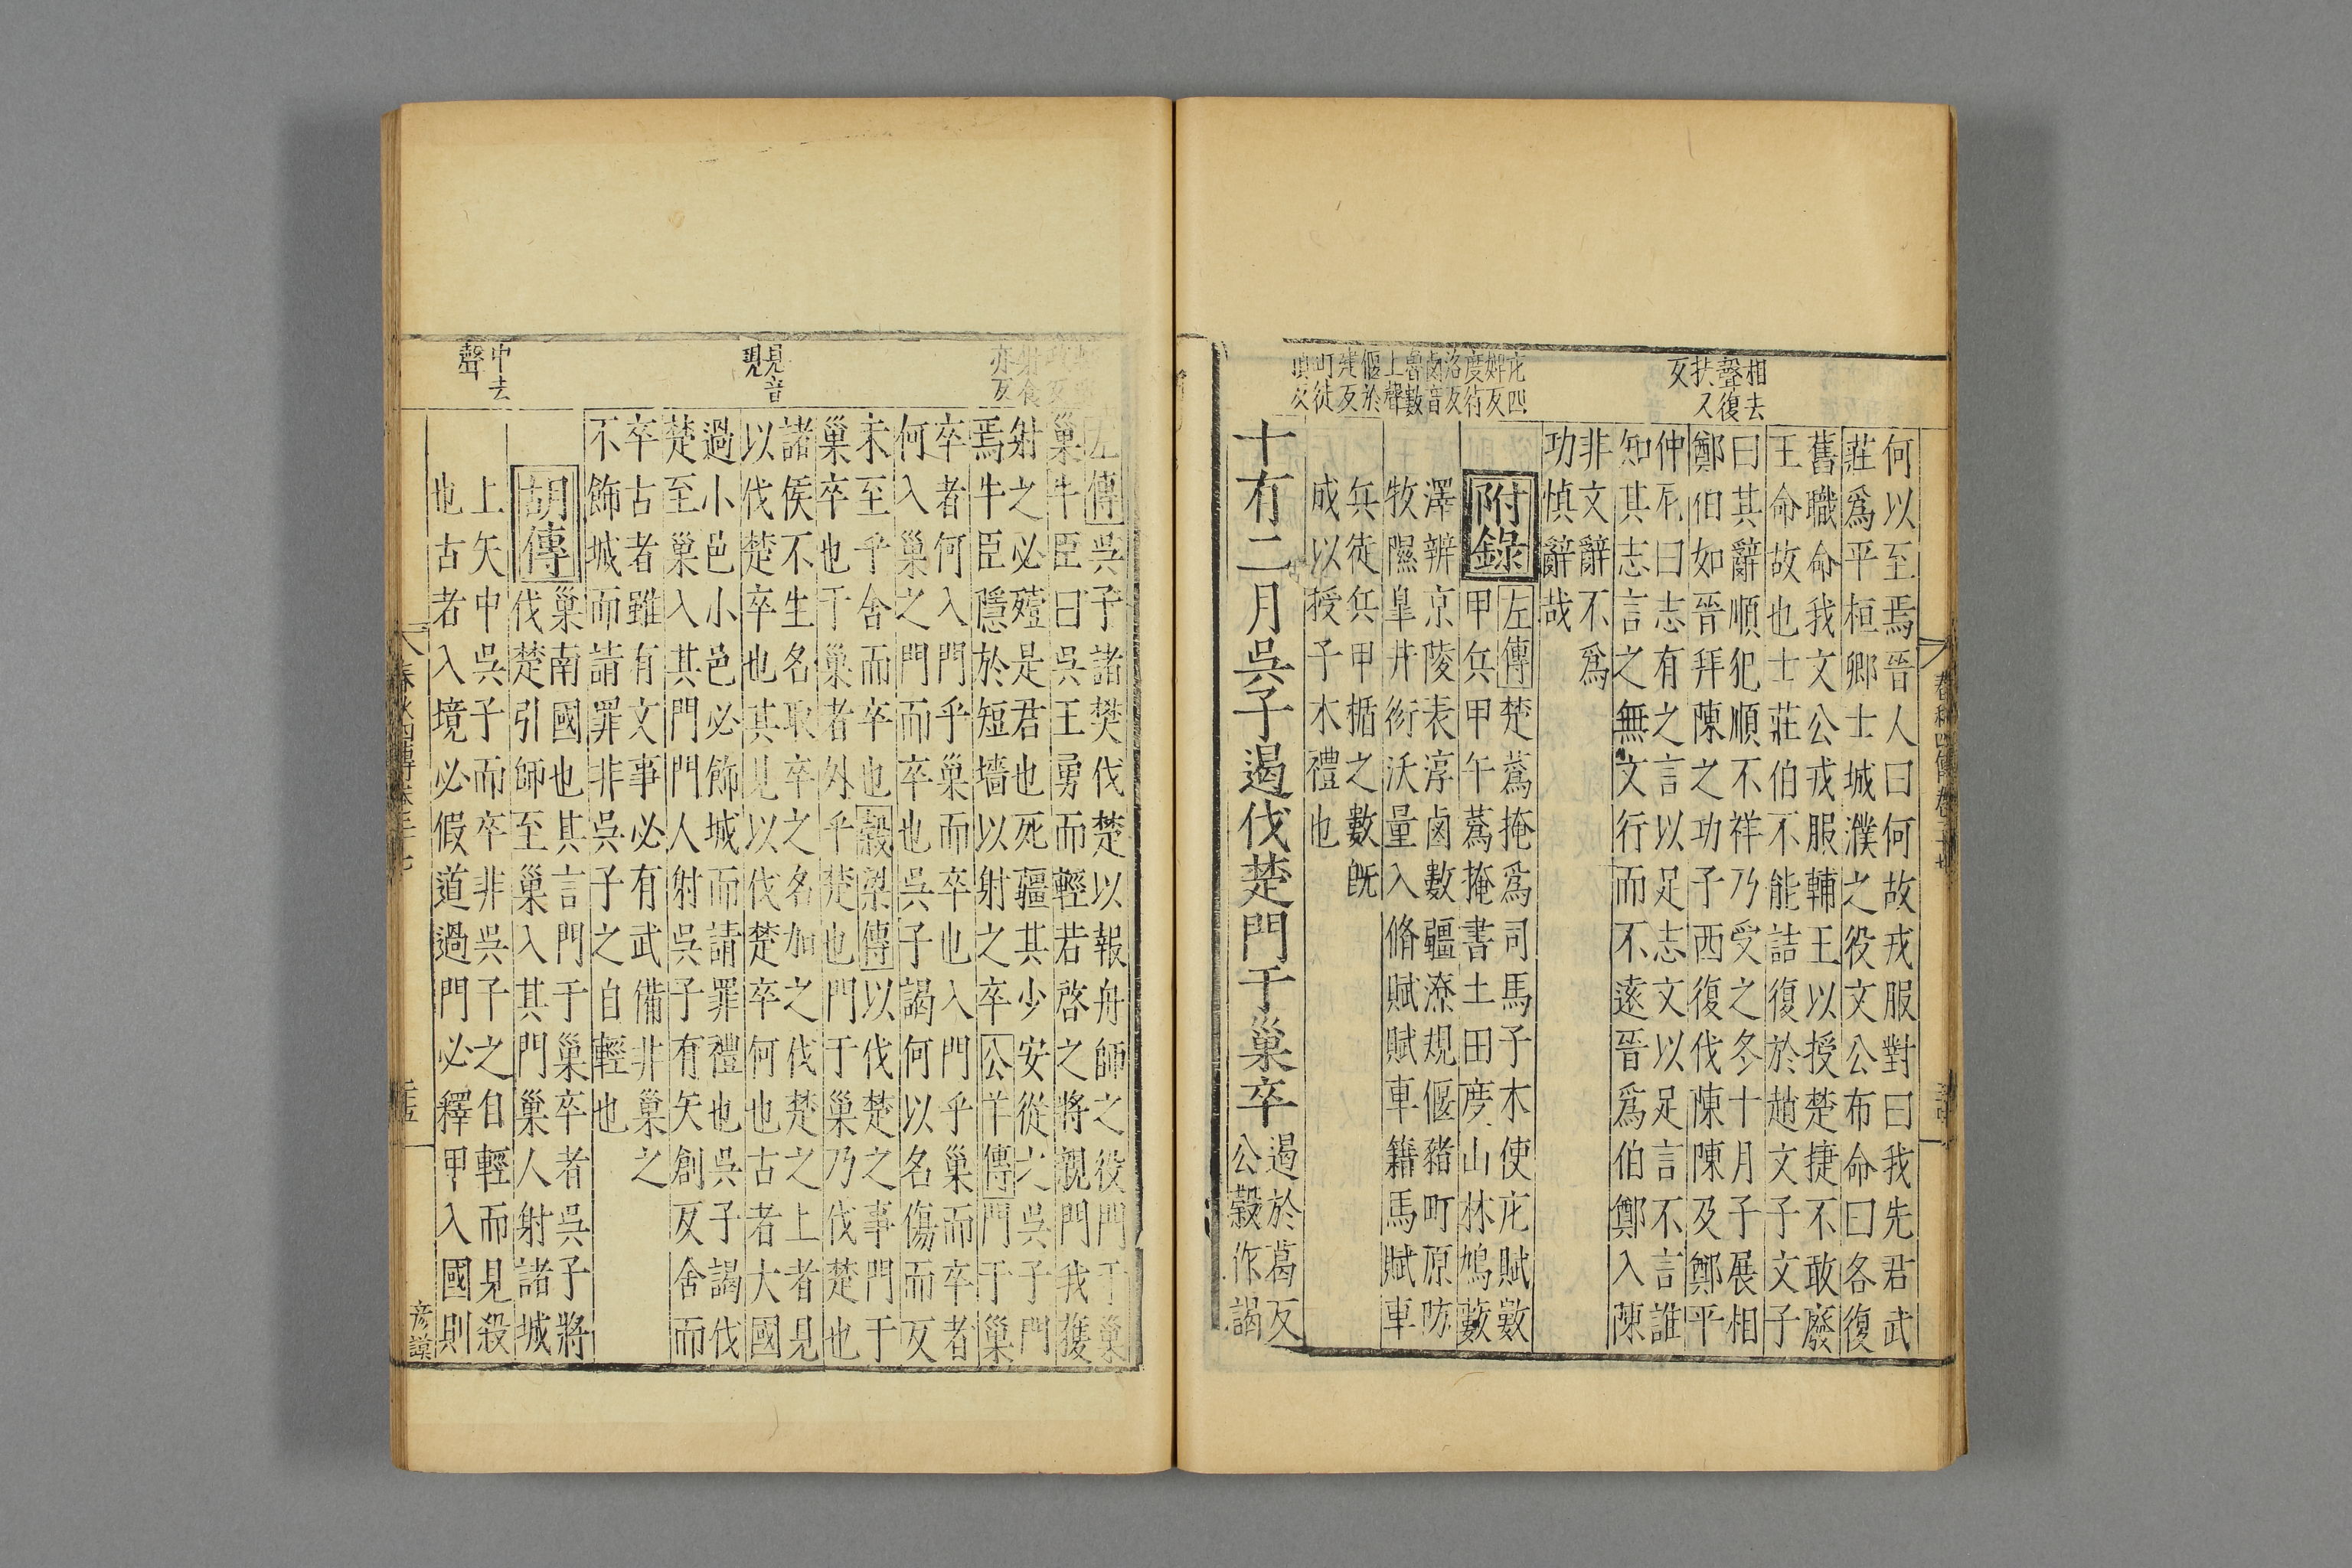 何以至焉晉人曰何故戎服對曰我先君武
莊爲平桓卿士城濮之役文公布命曰各復
舊職命我文公戎服輔王以授楚捷不敢廢
王命故也士莊伯不能詰復於趙文子文子
曰其辭順犯順不祥乃受之冬十月子展相
鄭伯如晉拜陳之功子西復伐陳陳及鄭平
仲尼曰志有之言以足志文以足言不言誰
知其志言之無文行而不遠晉爲伯鄭入陳
非文辭不爲
功慎辭哉
附錄
左傳楚蒍掩爲司馬子木使庀賦數
甲兵甲午蒍掩書土田度山林鳩藪
澤辨京陵表淳鹵數疆潦規偃豬町原防
牧隰皐井衍沃量入脩賦賦車籍馬賦車
兵徒兵甲楯之數旣
成以授子木禮也
十有二月吳子遏伐楚門于巢卒
遏於葛反
公穀作謁
相去
聲復
扶又
反
庀四
婢反
度待
洛反
鹵音
魯數
上聲
偃於
建反
町徒
頂反
左傳吳子諸樊伐楚以報舟師之役門于巢
巢牛臣曰吳王勇而輕若啓之將親門我獲
射之必殪是君也死疆其少安從之吳子門
焉牛臣隱於短墻以射之卒公羊傳門于巢
卒者何入門乎巢而卒也入門乎巢而卒者
何入巢之門而卒也吳子謁何以名傷而反
未至乎舍而卒也穀梁傳以伐楚之事門于
巢卒也于巢者外乎楚也門于巢乃伐楚也
諸侯不生名取卒之名加之伐楚之上者見
以伐楚卒也其見以伐楚卒何也古者大國
過小邑小邑必飾城而請罪禮也吳子謁伐
楚至巢入其門門人射吳子有矢創反舍而
卒古者雖有文事必有武備非巢之
不飾城而請罪非吳子之自輕也
胡傳
巢南國也其言門于巢卒者吳子將
伐楚引師至巢入其門巢人射諸城
上矢中吳子而卒非吳子之自輕而見殺
也古者入境必假道過門必釋甲入國則
射食
亦反
見音
現
中去
聲
彦謨